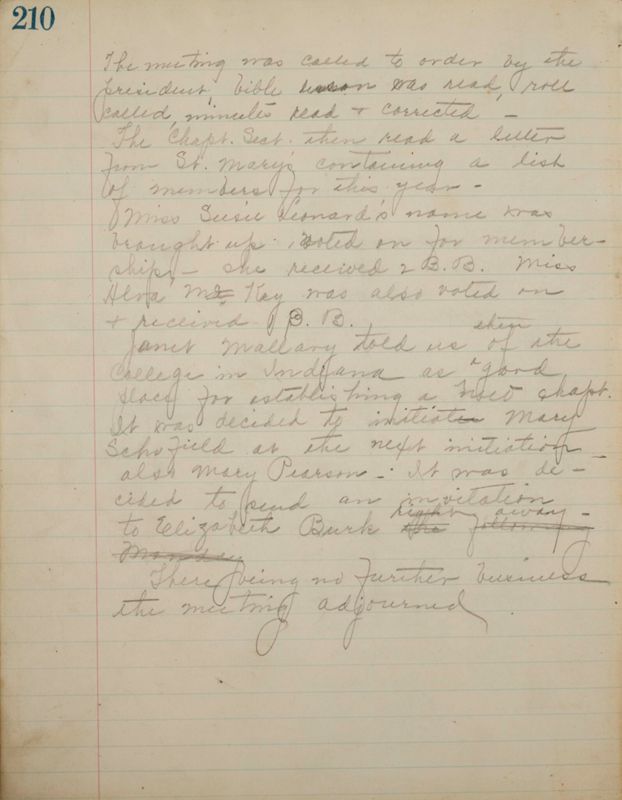 210
The meeting was called to order by the
president, bible lesson was read, roll
called, minutes read + corrected -
The Chapt. Sect. then read a letter
from St. Mary's containing a list
of members for this year -
Miss Susie Leonard's name was
brought up voted on for member-
ship - she received 2 B.B. Miss
Alva Mc Kay was also voted on
+ received 1 B. B.
then
Janet Mallary told us of the
College in Indiana as a good
place for establishing a new chapt.
It was decided to initiate Mary
Schofield at the next initiation
also Mary Pearson - It was de-
cided to send an invitation
right away -
to Elizabeth Burk the following
Monday
There being no further business
the meeting adjourned